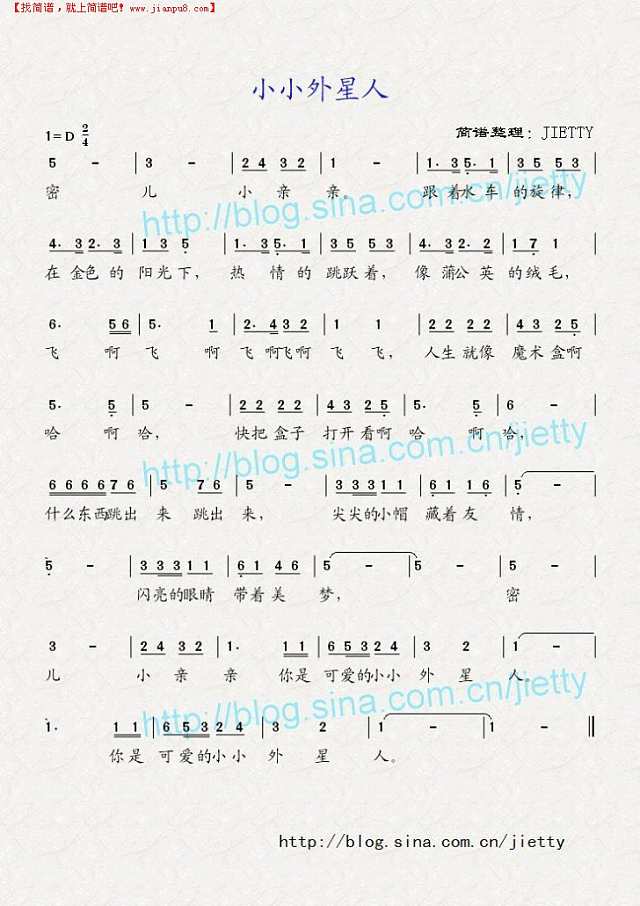 【找简谱，就上简谱吧! www.jianpu8.com】
小小外星人
1=D 2/4
简谱整理：JIETTY
5 - | 3 - | 2 4 3 2 | 1 - | 1· 3 5· 1 | 3 5 5 3 |
密 儿 小亲亲。 跟着水车的旋律，
http://blog.sina.com.cn/jietty
4· 3 2· 3 | 1 3 5 | 1· 3 5· 1 | 3 5 5 | 2· 3 2 2 | 1 7 |
在金色的阳光下， 热情的跳跃着， 像蒲公英的绒毛，
6· 5 6 | 5· 1 | 2· 4 3 2 | 1 1 | 2 2 2 2 | 4 3 2 5 |
飞 啊飞 啊飞啊飞啊飞飞， 人生就像魔术盒啊
5· 5 | 5 - | 2 2 2 2 | 4 3 2 5 | 5· 5 | 6 - |
哈 啊哈， 快把盒子打开看啊哈 啊哈，
http://blog.sina.com.cn/jietty
6 6 6 6 7 6 | 5 7 6 | 5 - | 3 3 3 1 1 | 6 1 1 6 | 5 - |
什么东西跳出来 跳出来， 尖尖的小帽藏着友情，
5 - | 3 3 3 1 1 | 6 1 4 6 | 5 - | 5 - | 5 - |
闪亮的眼睛带着美梦， 密
3 - | 2 4 3 2 | 1· 1 1 | 6 5 3 2 4 | 3 2 | 1 - |
儿 小亲亲 你是可爱的小小外星人。
http://blog.sina.com.cn/jietty
1· 1 1 | 6 5 3 2 4 | 3 2 | 1 - | 1 - ‖
你是可爱的小小外星人。
http://blog.sina.com.cn/jietty